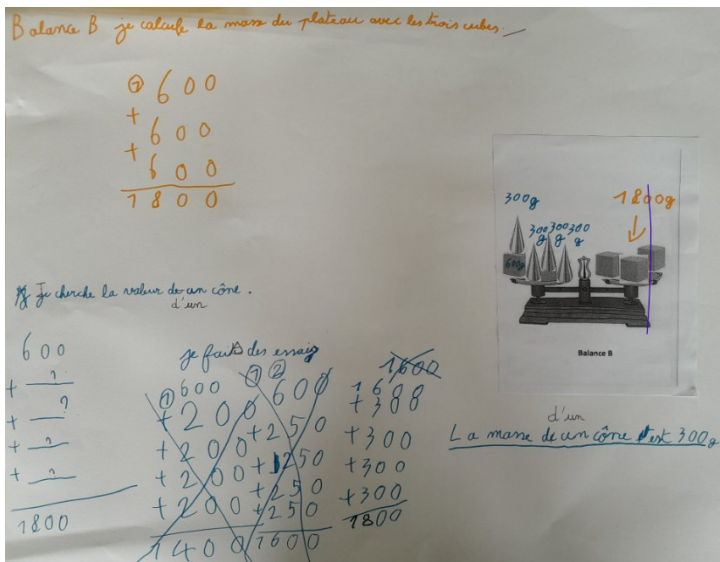 Balance B je calcule la masse du plateau avec les trois cubes.
① 600
+ 600
+ 600
1800
300g
300 300 300
g g g
600g
1800g
Balance B
Je cherche la valeur de un cône.
d'un
600
+ ?
+ ?
+ ?
+ ?
1800
je fais des essais
① 600
+ 200
+ 200
+ 200
+ 200
1400
① ② 600
+ 250
+ 250
+ 250
+ 250
1600
1600
+ 300
+ 300
+ 300
1800
d'un
La masse de un cône est 300g